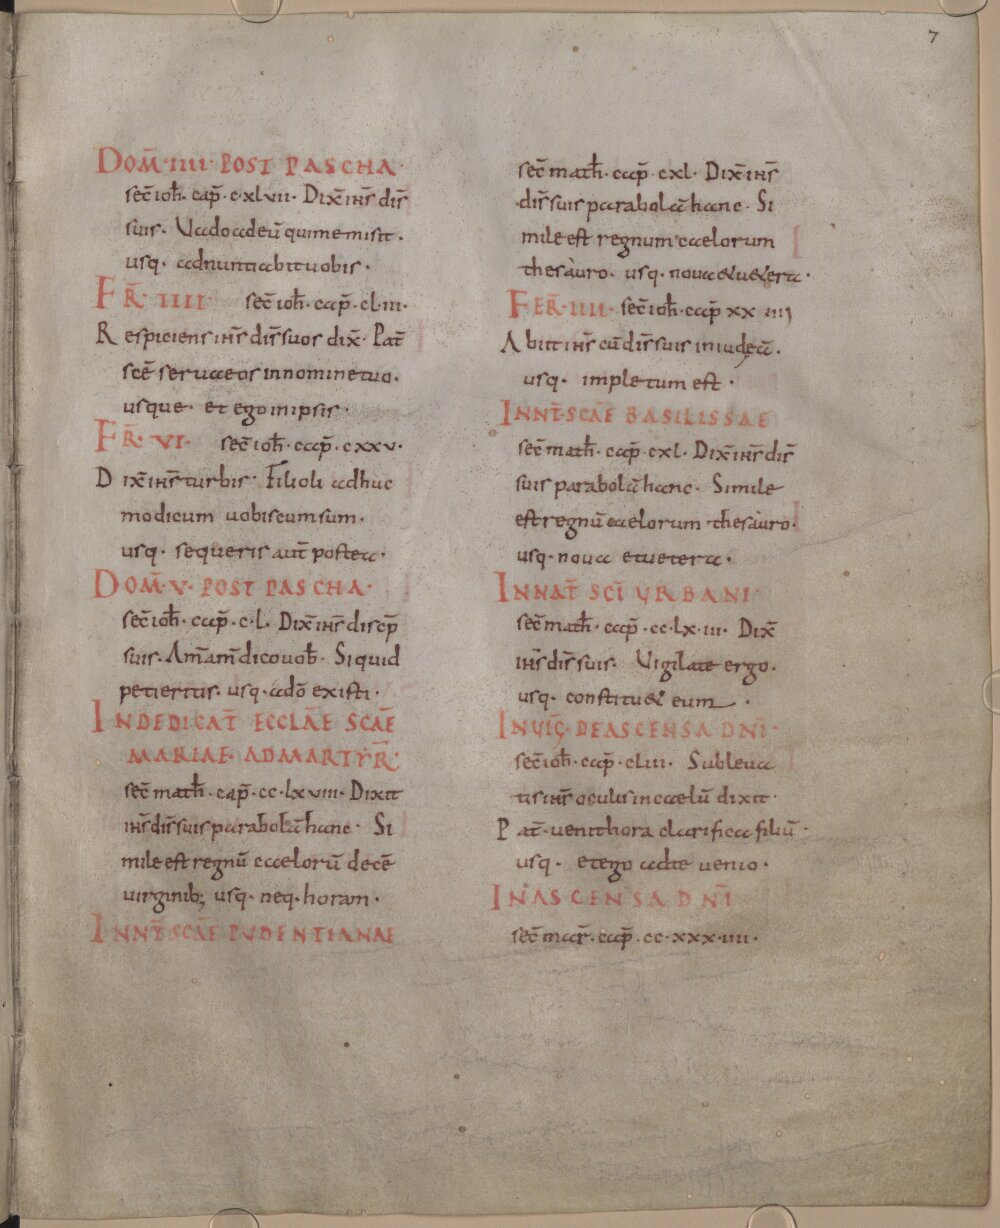 7
DOM̄·IIII·POST PASCHA·
sec̄ ioh̄·cap̄·c·xlvii·Dix̄ ihs̄ dis̄
suis·Uado ad eū qui me misit·
usq· adnuntiabit uobis·
FR̄·IIII sec̄ ioh̄·cap̄·cl·iii·
Respiciens ihs̄ dis̄ suos dix̄·Pat̄
sc̄e serua eos in nomine tuo·
usque· et ego in ipsis·
FR̄·VI· sec̄ ioh̄·cap̄·cxxv·
Dix̄ ihs̄ turbis·Filioli adhuc
modicum uobiscum sum·
usq· sequeris aut̄ postea·
DOM̄·V·POST PASCHA·
sec̄ ioh̄·cap̄·c·l·Dix̄ ihs̄ discip̄
suis·Am̄ am̄ dico uob̄·Si quid
petieritis·usq·a dō existi·
IN DEDICAT̄ ECCLAĒ SCAĒ
MARIAE·AD MARTYR̄·
sec̄ math̄·cap̄·cc·lxviii·Dixit
ihs̄ dis̄ suis parabolā hanc· Si
mile est regnū caelorū decē
uirginib; usq·neq·horam·
IN NT̄ SCAĒ PUDENTIANAE
sec̄ math̄·cap̄·cxl·Dix̄ ihs̄
dis̄ suis parabolā hanc·Si
mile est regnum caelorum
thesauro· usq·noua & uetera·
FER̄·IIII·sec̄ ioh̄·cap̄ xx iiii
Abiit ihs̄ cū dis̄ suis in iudęā·
usq· impletum est·
IN NT̄ SCAĒ BASILISSAE
sec̄ math̄·cap̄·cxl·Dix̄ ihs̄ dis̄
suis parabolā hanc· Simile
est regnū caelorum thesauro·
usq·noua et uetera·
IN NAT̄ SCĪ URBANI·
sec̄ math̄·cap̄·cc·lx·iii· Dix̄
ihs̄ dis̄ suis· Uigilate ergo·
usq· constitu& eum·
IN UIḠ·DE ASCENSA DNĪ·
sec̄ ioh̄·cap̄·cliii· Subleua
tis ihs̄ oculis in caelū dixit·
Pat̄·uenit hora clarifica filiū·
usq· et ego ad te uenio·
IN ASCENSA DNĪ
sec̄ mar̄·cap̄·cc·xxx·iiii·